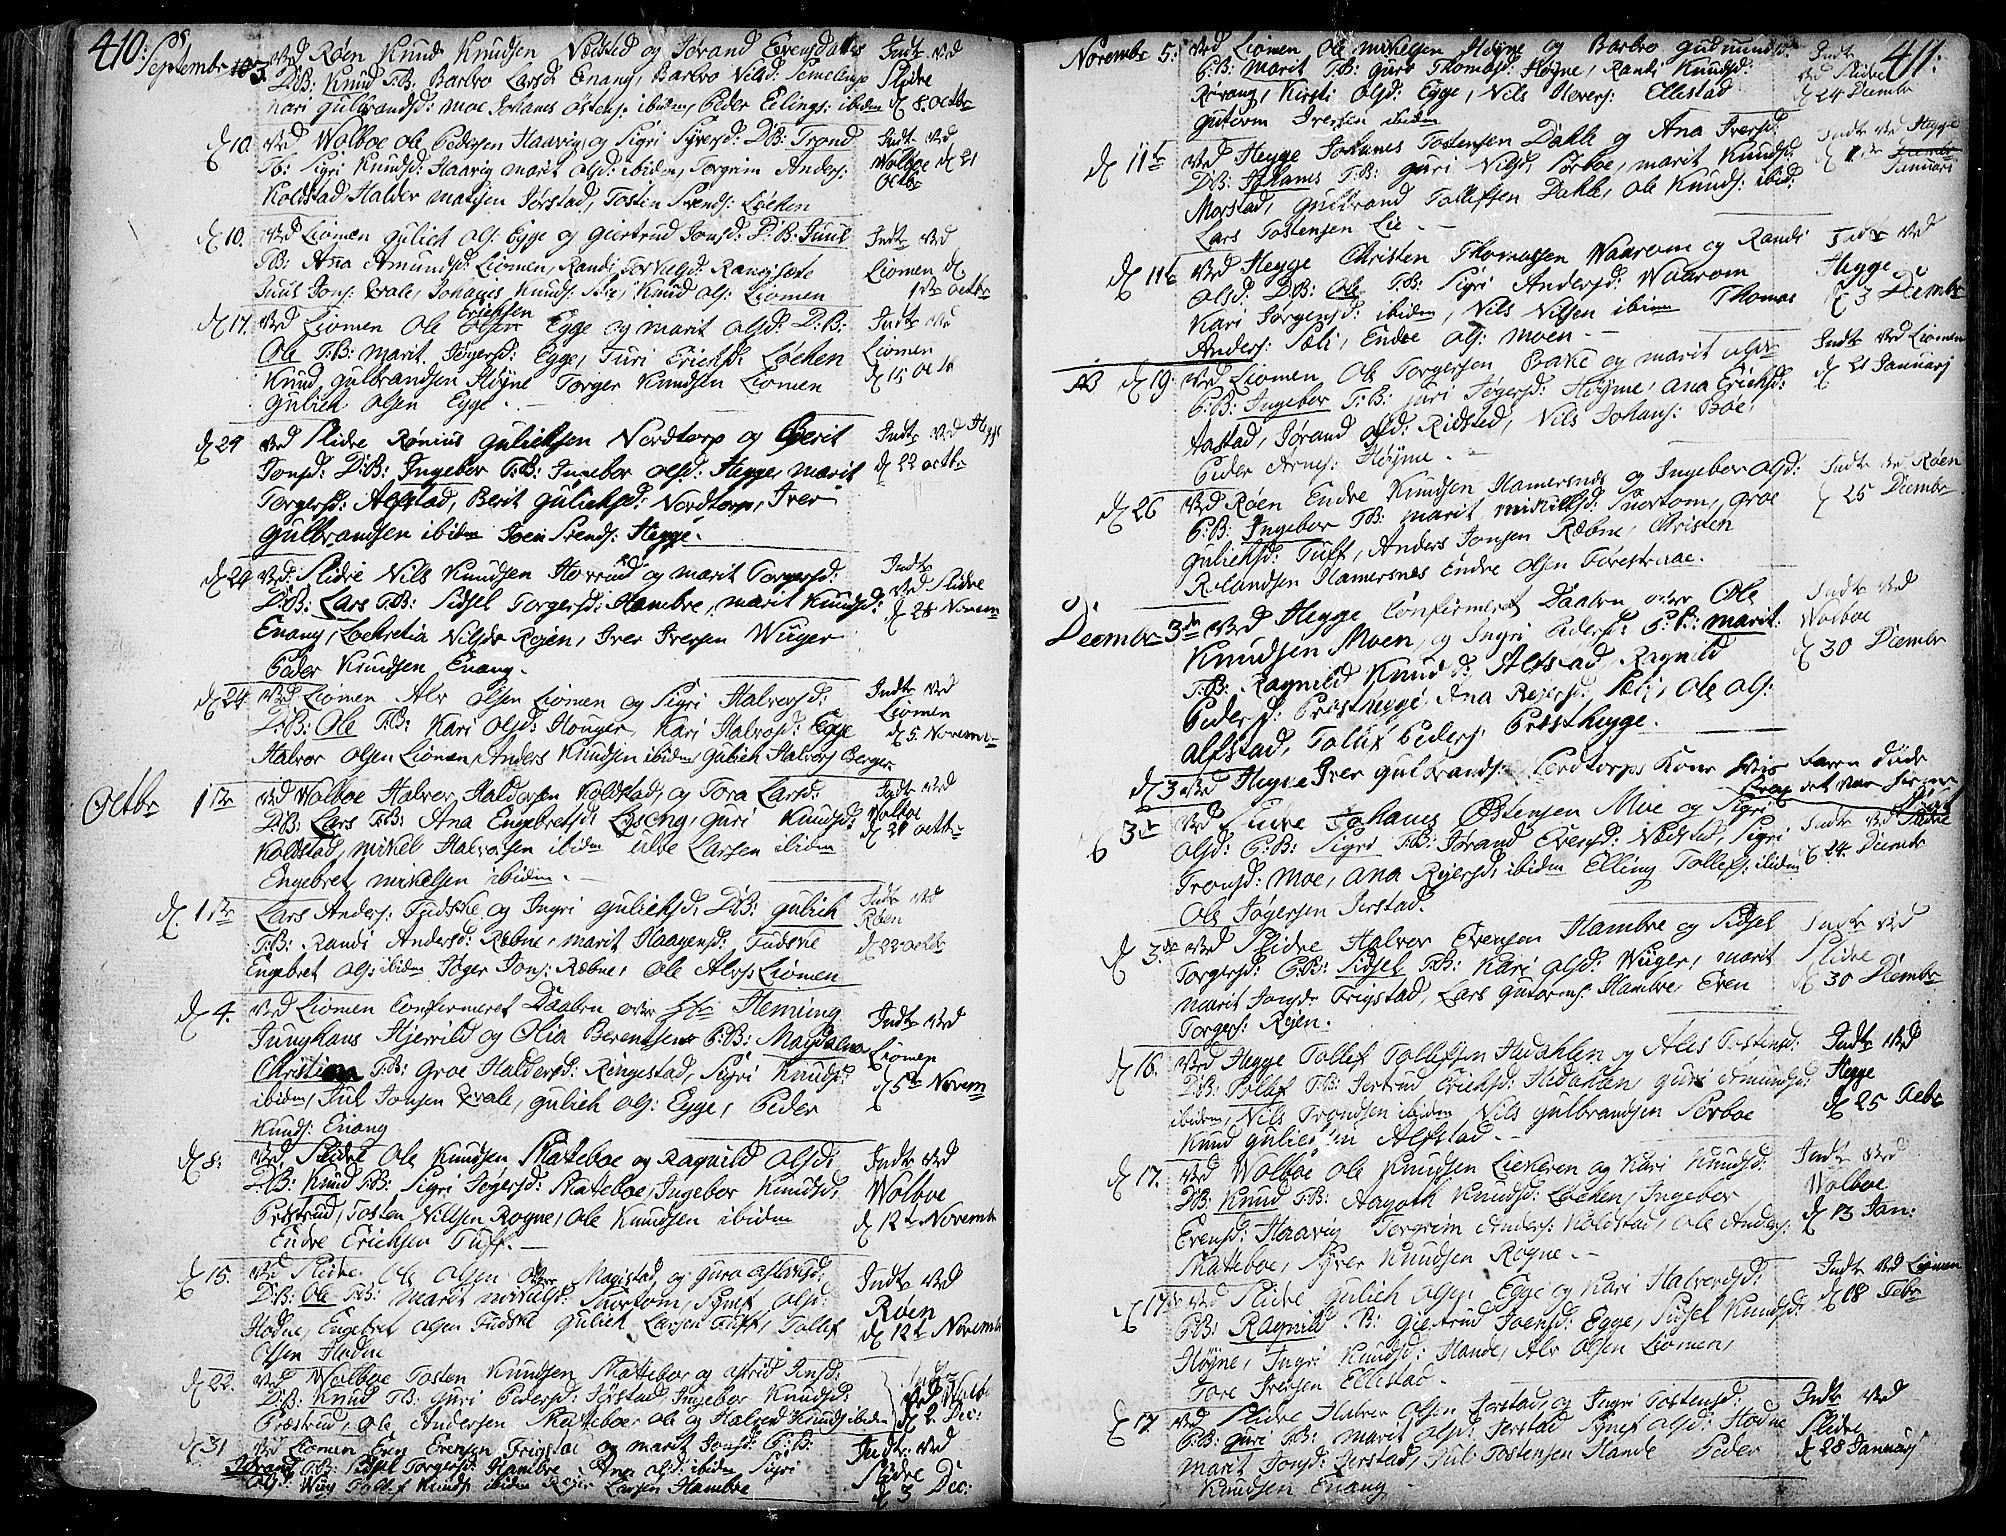 410:
Septembr 10 Ved Røen Knud Knudsen Nedsted og Jørand Evensdatter
D:B: Knud T:B: Barbro Larsd Enang, Barbro Nilsd: Semeling
Kari Gulbrandsd: Moe Johanes Østens: ibidem, Peder Erlings: ibidem
Indtr Ved Slidre d 8. octbr
d 10. Ved Wolboe Ole Pedersen Haavig og Sigri Syversd: D:B: Trond
T:B: Sigri Knudsd: Haavig Marit Olsd: ibidem, Torgrim Anders:
Kolstad, Haldor Matisen Jørstad, Tosten Svends: Løcken
Indtr Ved Wolboe d 21 Octbr
d 10. Ved Liomen Gulich Ols: Egge og Giertrud Jonsd: D:B: Juul
T:B: Ana Amundsd: Liomen, Randi Torkilsd: Ranisente
Juul Jons: Qvale, Johanes Knuds: Kiø, Knud Ols: Liomen
Indtr Ved Liomen d 1ste octbr
d 17. Ved Liomen Ole Erichsen Egge og Marit Olsd: D:B:
Ole T:B: Marit Jøgersd: Egge, Turi Erichsd: Løcken
Knud Gulbrandsen Høyne Torger Knudsen Liomen
Gulich Olsen Egge. -
Indtr Ved Liomen d 15 Octb
d 24 Ved Slidre Rønius Gulichsen Nordtorp og Berit
Jonsd: D:B: Ingebor T:B: Ingebor Olsd: Hegge, Marit
Torgersd: Alfstad, Berit Gulichsd: Nordtorp, Iver
Gulbrandsen ibidem Joen Svends: Hegge.
Indtr Ved Hegge d 22 octbr
d 24 Ved: Slidre Nils Knudsen Hovrud og Marit Torgersd:
D:B: Lars T:B: Sidsel Torgersd: Hambre, Marit Knudsd:
Enang, Lochretia Nilsdr Røjen, Iver Iversen Wiiger
Peder Knudsen Enang.
Indtr Ved Slidre d 28 Novem
d 24 Ved Liomen Alv Olsen Liomen og Sigri Halvorsd:
D:B: Ole T:B: Kari Olsd: Houger, Kari Halvosd: Egge
Halvor Olsen Liomen, Anders Knudsen ibidem Gulich Halvors Berger
Indtr Ved Liomen d 5. Novem
Octbr 1ste Ved Wolboe Halvor Haldorsen Kolstad, og Tora Larsd:
D:B: Lars T:B: Ana Engebretsd: Lyseng, Guri Knudsd:
Kolstad, Mikel Halvorsen ibidem Ulve Larsen ibidem
Engebret Mikelsen ibidem. -
Indtr Ved Wolboe d 31 octbr
d. 1ste Lars Anders: Fudske og Ingri Gulichsd: D:B: Gulich
T:B: Randi Andersd: Røbne, Marit Haagensd: Fudske
Engebret Ols: ibidem Jøger Jons: Røbne, Ole Alvs: Liomen
Indtr Ved Røen d 22 octbr
d 4. Ved Liomen Confirmeret Daaben over Hr Heming
Junghans Hjerrild og Olia Berentsen P:B: Magdalena
Christina T:B: Groe Haldorsd: Ringestad, Sigri Knudsd:
ibidem, Jul Jonsen Qvale, Gulich Ols: Egge, Peder
Knuds: Enang
Indtr Ved Liomen d 5te Novem
d 8: Ved Slidre Ole Knudsen Skatteboe og Ragnild Olsd:
D:B: Knud T:B: Sigri Jøgersd: Skatteboe, Ingebor Knudsd:
Præstrud, Tosten Nilsen Rogne, Ole Knudsen ibidem
Endre Erichsen Tuff. -
Indtr Ved Wolboe d 12te Novemb
d 15. Ved Slidre Ole Olsen Magistad og Guro Aslagsd:
D:B: Ole T:B: Marit Mikelsd: Snortom, Synef Olsd:
Hodne, Engebret Olsen Fudske Gulich Larsen Tuff, Tollef
Olsen Hodne
Indtr Ved Røen d 12te Novemb
d 22. Ved Wolboe Tosten Knudsen Skatteboe og Astrid Jonsd:
D:B: Knud T:B: Guri Pedersd: Jørstad, Ingebor Knudsd:
Præstrud, Ole Andersen Skatteboe, Ole og Halvor Knuds ibidem
Indtr Ved Wolb d 2 Dec:
d 31 Ved Liomen Even Evensen Frigstad og Marit Jonsd: P:B:
Jørand T:B: Sidsel Torgersd: Hambre Ana Olsd: ibidem Sigri
Olsd: Wiig Tollef Knuds ibidem Reier Larsen Hambre
Indtr Ved Slidre d 3 Dec:
411:
Novembr 5: Ved Liomen Ole Mikelsen Høyne og Barbro Gudmunds:
P:B: Marit T:B: Guro Thomasd: Høyne, Randi Knudsd:
Rivang, Kirsti Olsd: Egge, Nils Olevers: Ellestad
Gutorm Iversen ibidem
Indtr Ved Slidre d 24 Diembr
d 11te Ved Hegge Johanes Tostensen Dahle og Ana Iversd:
D:B: Johanes T:B: Guri Nilsd: Sørboe, Marit Knudsd:
Morstad, Gulbrand Tollefsen Dahle, Ole Knuds: ibid:
Lars Tostensen Lie. -
Indtr Ved Hegge d 1ste Januari
d 11te Ved Hegge Christen Thomassen Waarom og Randi
Olsd: D:B: Ole T:B: Sigri Andersd: Waarom
Kari Jørgensd: ibidem, Nils Nilsen ibidem Thomas
Anders: Sæli, Endre Ols: Moen. -
Indtr Ved Hegge d 3 Diembr
NB d 19. Ved Liomen Ole Torgersen Bakke og Marit Olsdr
P:B: Ingebor T:B: Guri Jøgersd: Høyne, Ana Erichsd:
Aastad, Jørand Olsd: Ridsted, Nils Johans: Boe,
Peder Arnes: Høyne. -
Indtr Ved Liomen d 21 Januarj
d 26 Ved Røen Endre Knudsen Hamersnes og Ingebor Olsd:
P:B: Ingebor T:B: Marit Mikelsd: Snortom, Groe
Gulichsd: Tuff, Anders Jonsen Røbne, Christen
Rolandsen Hamersnes Endre OlsenFørestrane.
Indtr Ved Røen d 25 Diembr
Diembr 3die Ved Hegge Confirmeret Daaben over Ole
Knudsen Moen, og Ingri Pedersd: P:B: Marit
T:B: Ragnild Knudsd: Alfstad, Ragnild
Pedersd: Presthegge, Ana Reyersd: Sæli, Ole Ols:
Alfstad, Tolluf Peders: Præsthegge.
Indtr Ved Wolboe d 30 Diembr
d 3 Ved Hegge Iver Gulbrands: Nordtorps Kone
d 3die Ved Slidre Johanes Østensen Moe og Sigri
Olsd: P:B: Sigri T:B: Jørand Evensd: Nedsted, Sigri
Tronsd: Moe, Ana Reyersd: ibidem Elling Tollefs: ibidem
Ole Jøgersen Jerstad.
Indtr Ved Slidre d 24. Diembr
d 3die Ved Slidre Halvor Evensen Hambre og Sidsel
Torgersd: P:B: Sidsel T:B: Kari Olsd: Wiiger, Marit
Marit Jonsdr Frigstad, Lars Gutorms: Hambre, Even
Torgers: Røjen.
Indtr Ved Slidre d 30 Diembr
d 16. Ved Hegge Tollef Tollefsen Hedahlen og Ales Tostensd:
D:B: Tollef T:B: Jertrud Erichsd: Hedahlen, Guri Amundsd:
ibidem, Nils Trondsen ibidem Nils Gulbrandsen Sørboe
Knud Gulichsen Alfstad. -
Indtr Ved Hegge d 25 Febr
d 17. Ved Wolboe Ole Knudsen Liekeren og Kari Knudsd:
D:B: Knud T:B: Aagoth Knudsd: Løcken, Ingebor
Evensd: Haavig Torgrim Anders: Kolstad, Ole Anders:
Skatteboe, Syver Knudsen Rogne. -
Indtr Ved Wolboe d 13 Jan:
d 17de Ved Slidre Gulich Olsen Egge og Kari Halvordsd:
P:B: Ragnild T:B: Giertrud Joensd: Egge, Sidsel Knudsd:
Høyne, Ingri Knudsd: Hande, Alv Olsen Liomen,
Tore Iversen Ellestad. -
Indtr Ved Liomen d 18 Febr
d 17 Ved Slidre Halvor Olsen Jerstad, og Ingri Tostensd:
P:B: Guri T:B: Marit Olsd: Jerstad Synef Olsd: Hodne
Marit Jonsd: Jerstad, Jul Tostensen Hande Peder
Knudsen Enang
Indtr Ved Slidre d 28 Januarj